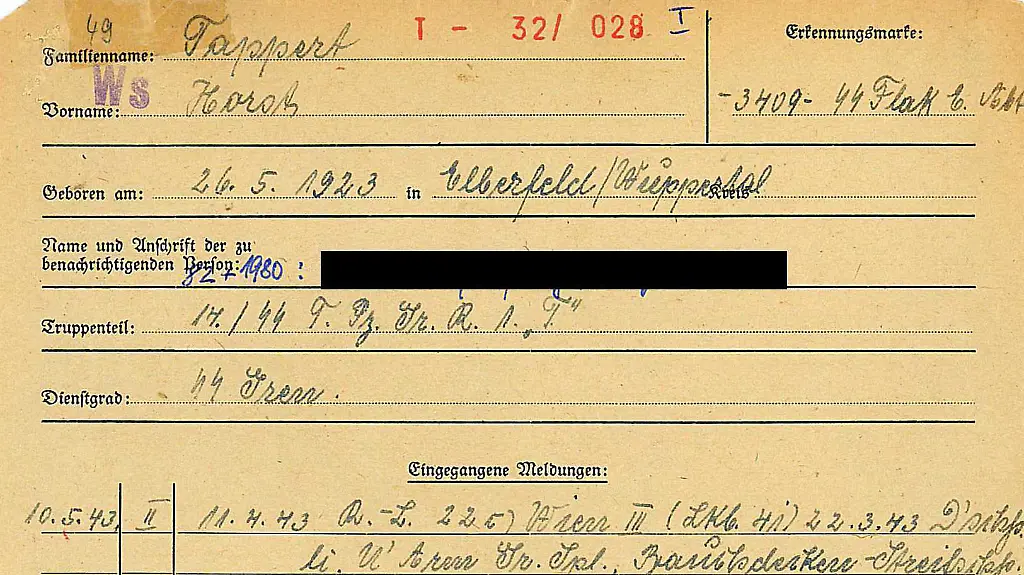 49
T - 32/ 028 I
Familienname: Tappert
Erkennungsmarke:
Ws
Vorname: Horst
-3409- SS Flak E. Abt
Geboren am: 26. 5. 1923 in Elberfeld/Wuppertal Kreis:
Name und Anschrift der zu
benachrichtigenden Person: 82 + 1980 :
Truppenteil: 14./ SS T. Pz. Gr. R. 1. „T"
Dienstgrad: SS Gren.
Eingegangene Meldungen:
10.5.43 II 11.4.43 R.-L. 225) Wien III (LKb. 41) 22.3.43 D'schß.
li. U' Arm Gr. Spl., Bauchdecken-Streifschß.